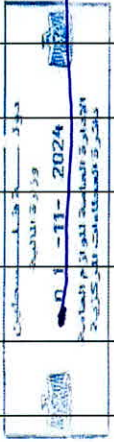 دولة فلسطين
وزارة المالية
0 1 -11- 2024
الإدارة العامة للوازم العامة
دائرة العطاءات المركزية